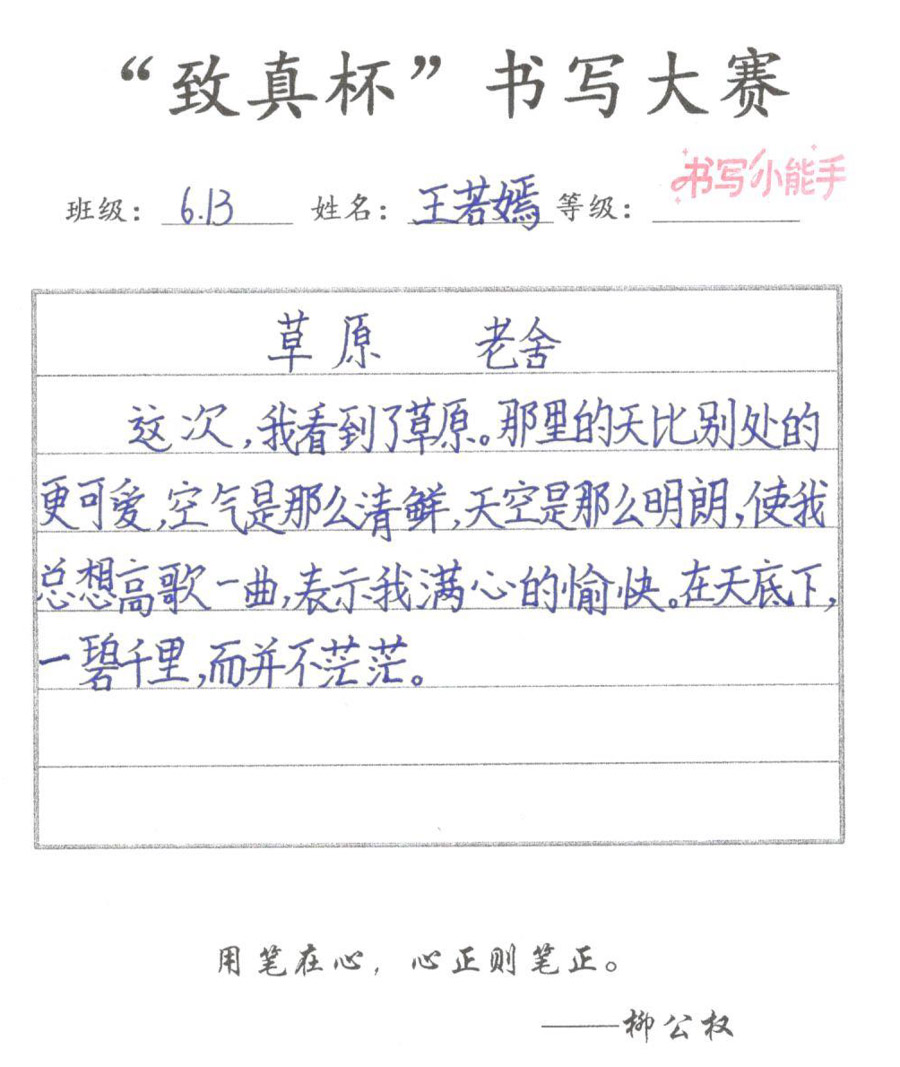 “致真杯”书写大赛
书写小能手
班级：6.13 姓名：王若嫣 等级：
草原 老舍
这次,我看到了草原。那里的天比别处的
更可爱,空气是那么清鲜,天空是那么明朗,使我
总想高歌一曲,表示我满心的愉快。在天底下,
一碧千里,而并不茫茫。
用笔在心，心正则笔正。
——柳公权